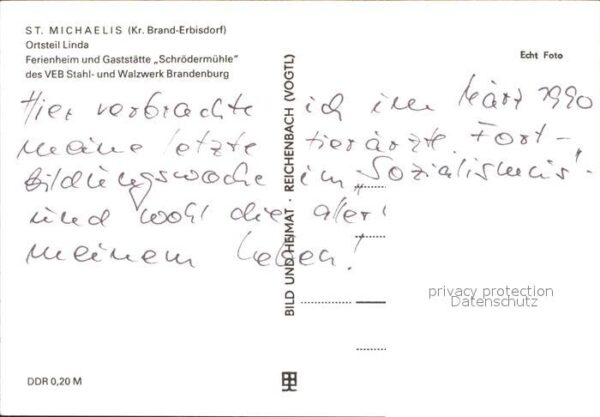 ST. MICHAELIS (Kr. Brand-Erbisdorf)
Ortsteil Linda
Ferienheim und Gaststätte „Schrödermühle"
des VEB Stahl- und Walzwerk Brandenburg
Echt Foto
Hier verbrachte ich im März 1990
meine letzte tierärztl. Fort-
bildungswoche im „Sozialismus" -
und wohl die aller
meinem Leben!
BILD UND HEIMAT · REICHENBACH (VOGTL)
privacy protection
Datenschutz
DDR 0,20 M